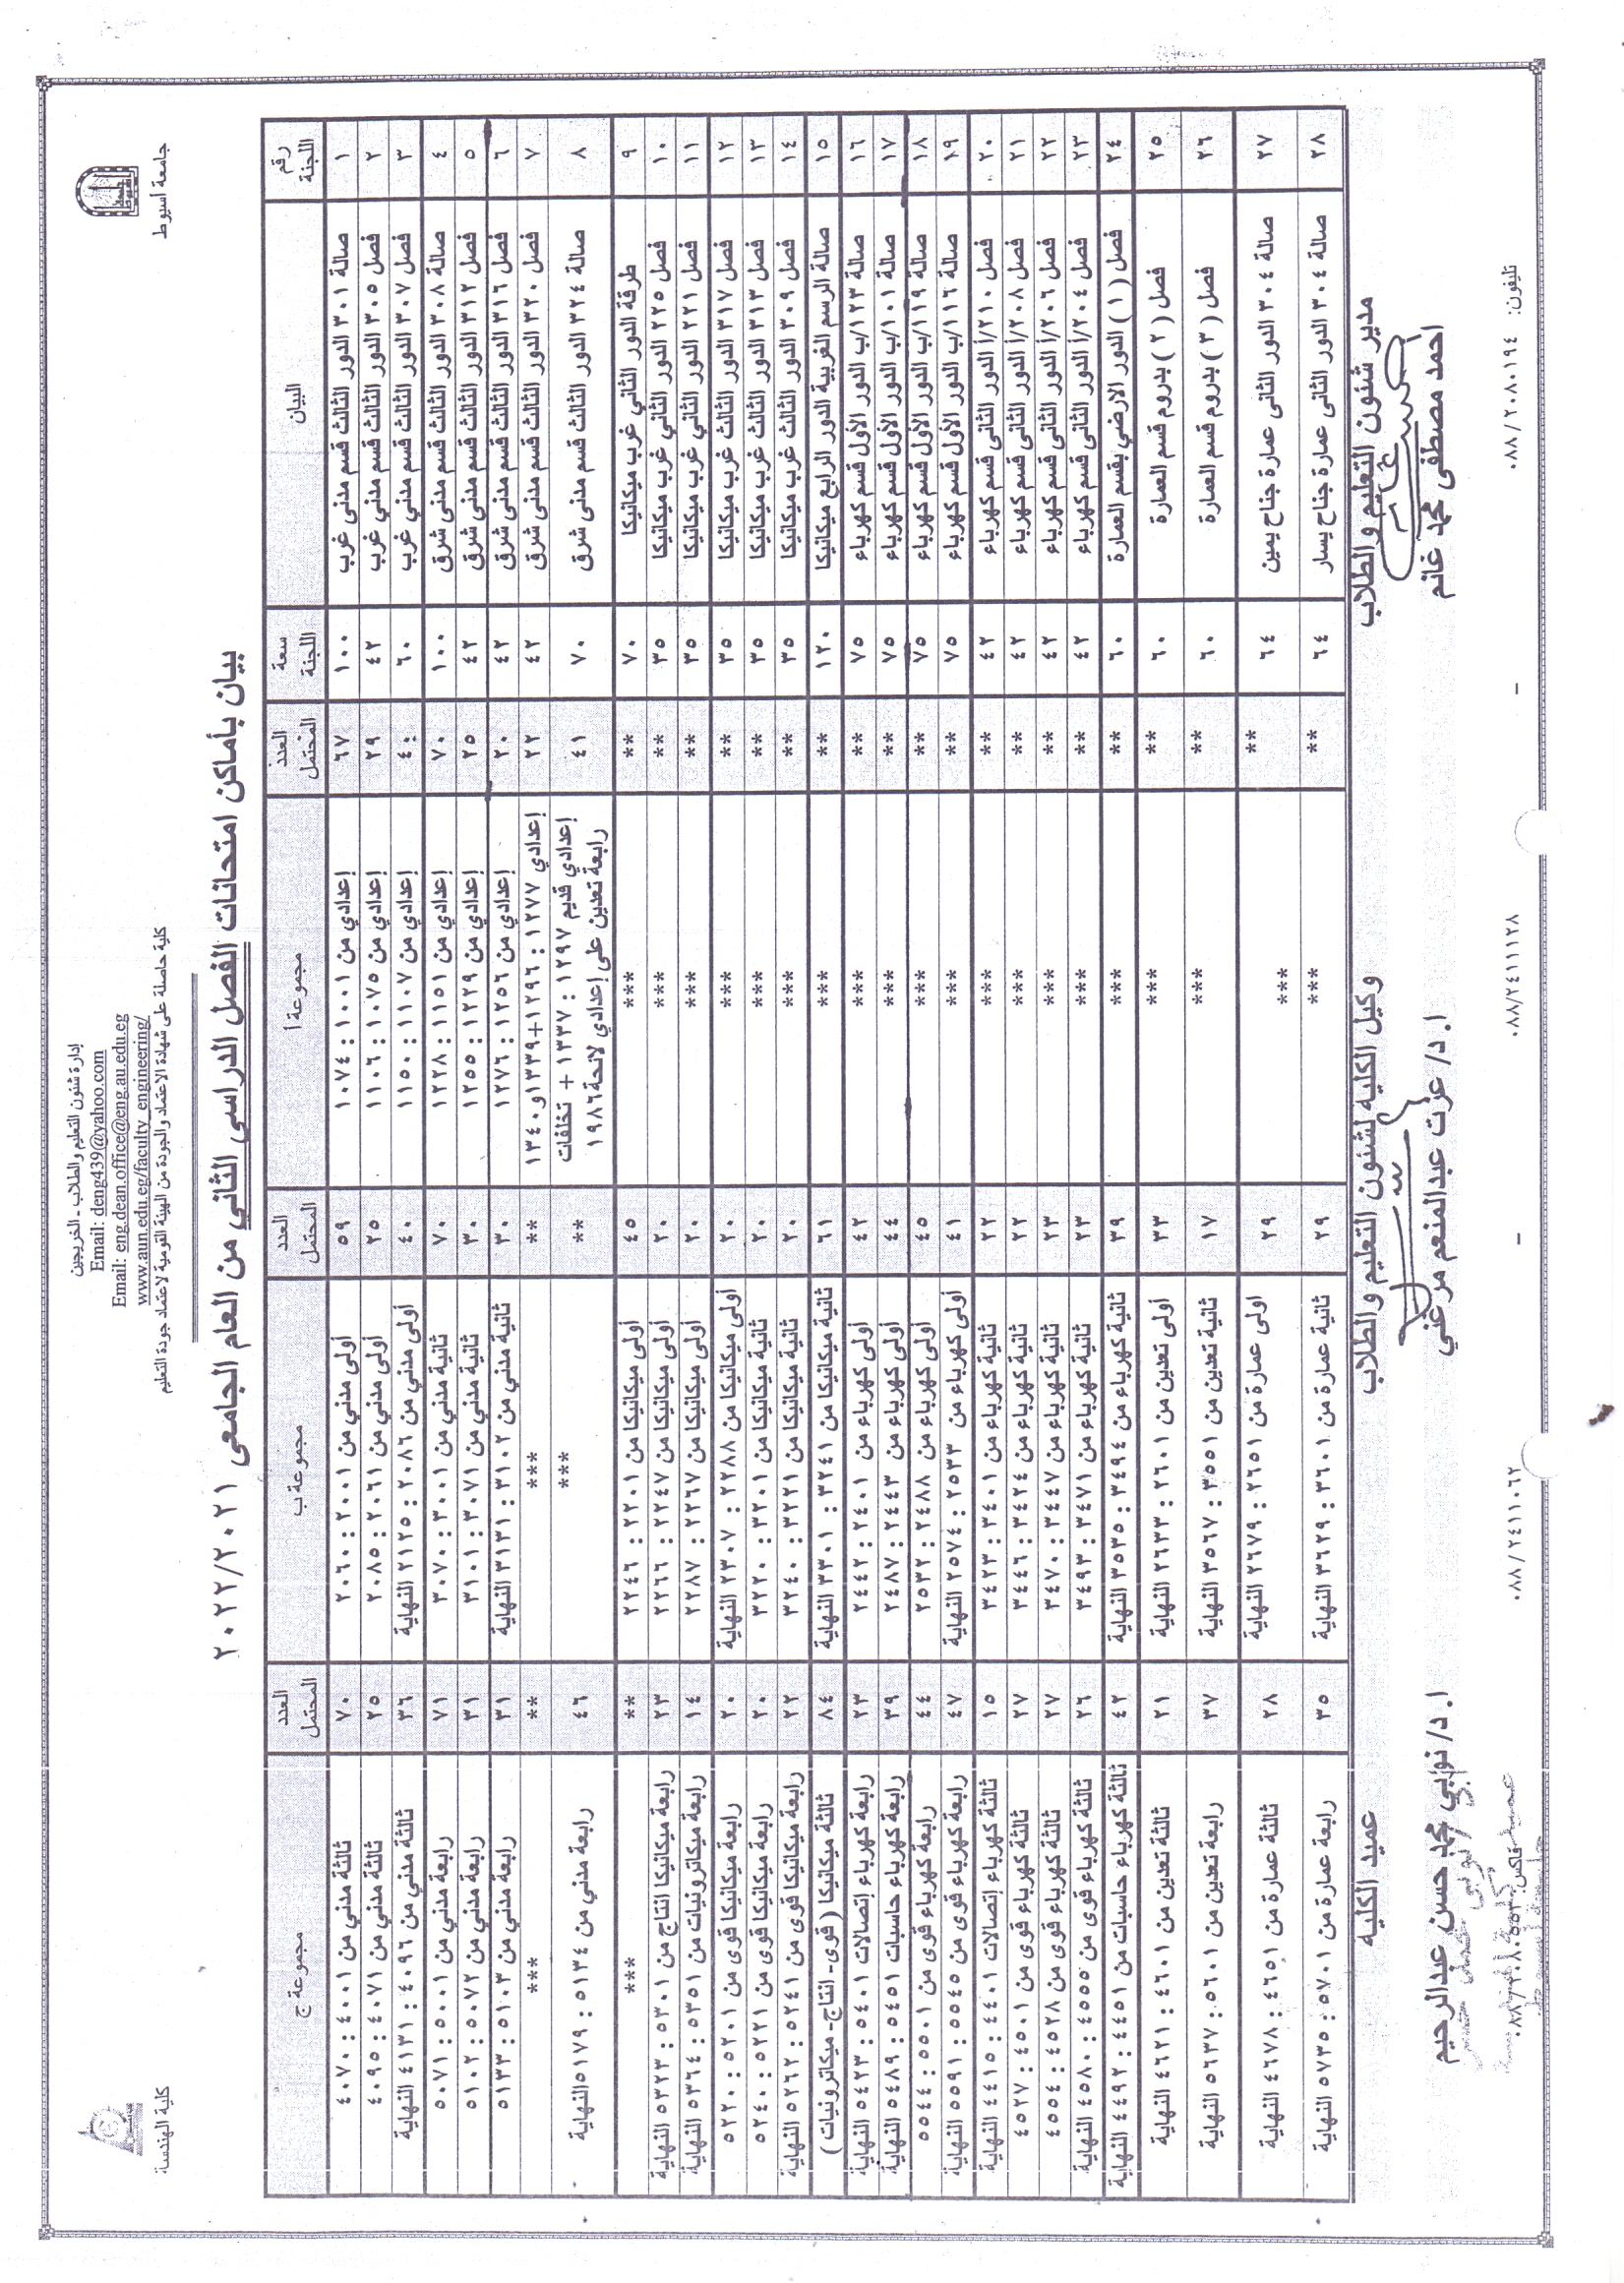 جامعة أسيوط
كلية الهندسة
إدارة شئون التعليم والطلاب - الخريجين
Email: deng439@yahoo.com
Email: eng.dean.office@eng.au.edu.eg
www.aun.edu.eg/faculty_engineering/
كلية حاصلة على شهادة الاعتماد والجودة من الهيئة القومية لاعتماد جودة التعليم
بيان بأماكن امتحانات الفصل الدراسى الثاني من العام الجامعى ٢٠٢٢/٢٠٢١
رقم اللجنة | البيان | سعة اللجنة | العدد المحتمل | مجموعة أ | العدد المحتمل | مجموعة ب | العدد المحتمل | مجموعة ج
١ | صالة ٣٠١ الدور الثالث قسم مدنى غرب | ١٠٠ | ٦٧ | إعدادي من ١٠٠١ : ١٠٧٤ | ٥٩ | أولى مدني من ٢٠٠١ : ٢٠٦٠ | ٧٠ | ثالثة مدني من ٤٠٠١ : ٤٠٧٠
٢ | فصل ٣٠٥ الدور الثالث قسم مدني غرب | ٤٢ | ٢٩ | إعدادي من ١٠٧٥ : ١١٠٦ | ٢٥ | أولى مدني من ٢٠٦١ : ٢٠٨٥ | ٢٥ | ثالثة مدني من ٤٠٧١ : ٤٠٩٥
٣ | فصل ٣٠٧ الدور الثالث قسم مدني غرب | ٦٠ | ٤٠ | إعدادي من ١١٠٧ : ١١٥٠ | ٤٠ | أولى مدني من ٢٠٨٦ : ٢١٢٥ النهاية | ٣٦ | ثالثة مدني من ٤٠٩٦ : ٤١٣١ النهاية
٤ | صالة ٣٠٨ الدور الثالث قسم مدنى شرق | ١٠٠ | ٧٠ | إعدادي من ١١٥١ : ١٢٢٨ | ٧٠ | ثانية مدني من ٣٠٠١ : ٣٠٧٠ | ٧١ | رابعة مدني من ٥٠٠١ : ٥٠٧١
٥ | فصل ٣١٢ الدور الثالث قسم مدنى شرق | ٤٢ | ٢٥ | إعدادي من ١٢٢٩ : ١٢٥٥ | ٣٠ | ثانية مدني من ٣٠٧١ : ٣١٠١ | ٣١ | رابعة مدني من ٥٠٧٢ : ٥١٠٢
٦ | فصل ٣١٦ الدور الثالث قسم مدنى شرق | ٤٢ | ٢٠ | إعدادي من ١٢٥٦ : ١٢٧٦ | ٣٠ | ثانية مدني من ٣١٠٢ : ٣١٣١ النهاية | ٣١ | رابعة مدني من ٥١٠٣ : ٥١٣٣
٧ | فصل ٣٢٠ الدور الثالث قسم مدنى شرق | ٤٢ | ٢٢ | إعدادي ١٢٧٧ : ١٢٩٦+١٣٣٩و١٣٤٠ | ** | *** | ** | ***
٨ | صالة ٣٢٤ الدور الثالث قسم مدنى شرق | ٧٠ | ٤١ | إعدادي قديم ١٢٩٧ : ١٣٣٧ + تخلفات رابعة تعدين على إعدادي لائحة ١٩٨٦ | ** | *** | ٤٦ | رابعة مدني من ٥١٣٤ : ٥١٧٩ النهاية
٩ | طرقة الدور الثاني غرب ميكانيكا | ٧٠ | ** | *** | ٤٥ | أولى ميكانيكا من ٢٢٠١ : ٢٢٤٦ | ** | ***
١٠ | فصل ٢٢٥ الدور الثاني غرب ميكانيكا | ٣٥ | ** | *** | ٢٠ | أولى ميكانيكا من ٢٢٤٧ : ٢٢٦٦ | ٢٣ | رابعة ميكانيكا انتاج من ٥٣٠١ : ٥٣٢٣ النهاية
١١ | فصل ٢٢١ الدور الثاني غرب ميكانيكا | ٣٥ | ** | *** | ٢٠ | أولى ميكانيكا من ٢٢٦٧ : ٢٢٨٧ | ١٤ | رابعة ميكاترونيات من ٥٣٥١ : ٥٣٦٤ النهاية
١٢ | فصل ٣١٧ الدور الثالث غرب ميكانيكا | ٣٥ | ** | *** | ٢٠ | أولى ميكانيكا من ٢٢٨٨ : ٢٣٠٧ النهاية | ٢٠ | رابعة ميكانيكا قوى من ٥٢٠١ : ٥٢٢٠
١٣ | فصل ٣١٣ الدور الثالث غرب ميكانيكا | ٣٥ | ** | *** | ٢٠ | ثانية ميكانيكا من ٣٢٠١ : ٣٢٢٠ | ٢٠ | رابعة ميكانيكا قوى من ٥٢٢١ : ٥٢٤٠
١٤ | فصل ٣٠٩ الدور الثالث غرب ميكانيكا | ٣٥ | ** | *** | ٢٠ | ثانية ميكانيكا من ٣٢٢١ : ٣٢٤٠ | ٢٢ | رابعة ميكانيكا قوى من ٥٢٤١ : ٥٢٦٢ النهاية
١٥ | صالة الرسم الغربية الدور الرابع ميكانيكا | ١٢٠ | ** | *** | ٦١ | ثانية ميكانيكا من ٣٢٤١ : ٣٣٠١ النهاية | ٨٤ | ثالثة ميكانيكا ( قوى- انتاج- ميكاترونيات )
١٦ | صالة ١٢٣/ب الدور الأول قسم كهرباء | ٧٥ | ** | *** | ٤٢ | أولى كهرباء من ٢٤٠١ : ٢٤٤٢ | ٢٣ | رابعة كهرباء إتصالات ٥٤٠١ : ٥٤٢٣ النهاية
١٧ | صالة ١٠١/ب الدور الأول قسم كهرباء | ٧٥ | ** | *** | ٤٤ | أولى كهرباء من ٢٤٤٣ : ٢٤٨٧ | ٣٩ | رابعة كهرباء حاسبات ٥٤٥١ : ٥٤٨٩ النهاية
١٨ | صالة ١١٩/ب الدور الأول قسم كهرباء | ٧٥ | ** | *** | ٤٥ | أولى كهرباء من ٢٤٨٨ : ٢٥٣٢ | ٤٤ | رابعة كهرباء قوى من ٥٥٠١ : ٥٥٤٤
١٩ | صالة ١١٦/ب الدور الأول قسم كهرباء | ٧٥ | ** | *** | ٤١ | أولى كهرباء من ٢٥٣٣ : ٢٥٧٤ النهاية | ٤٧ | رابعة كهرباء قوى من ٥٥٤٥ : ٥٥٩١ النهاية
٢٠ | فصل ٢١٠/أ الدور الثانى قسم كهرباء | ٤٢ | ** | *** | ٢٢ | ثانية كهرباء من ٣٤٠١ : ٣٤٢٣ | ١٥ | ثالثة كهرباء إتصالات ٤٤٠١ : ٤٤١٥ النهاية
٢١ | فصل ٢٠٨/أ الدور الثانى قسم كهرباء | ٤٢ | ** | *** | ٢٢ | ثانية كهرباء من ٣٤٢٤ : ٣٤٤٦ | ٢٧ | ثالثة كهرباء قوى من ٤٥٠١ : ٤٥٢٧
٢٢ | فصل ٢٠٦/أ الدور الثانى قسم كهرباء | ٤٢ | ** | *** | ٢٣ | ثانية كهرباء من ٣٤٤٧ : ٣٤٧٠ | ٢٧ | ثالثة كهرباء قوى من ٤٥٢٨ : ٤٥٥٤
٢٣ | فصل ٢٠٤/أ الدور الثانى قسم كهرباء | ٤٢ | ** | *** | ٢٣ | ثانية كهرباء من ٣٤٧١ : ٣٤٩٣ | ٢٦ | ثالثة كهرباء قوى من ٤٥٥٥ : ٤٥٨٠ النهاية
٢٤ | فصل ( ١ ) الدور الارضي بقسم العمارة | ٦٠ | ** | *** | ٣٩ | ثانية كهرباء من ٣٤٩٤ : ٣٥٣٥ النهاية | ٤٢ | ثالثة كهرباء حاسبات من ٤٤٥١ : ٤٤٩٢ النهاية
٢٥ | فصل ( ٢ ) بدروم قسم العمارة | ٦٠ | ** | *** | ٣٣ | أولى تعدين من ٢٦٠١ : ٢٦٣٣ النهاية | ٢١ | ثالثة تعدين من ٤٦٠١ : ٤٦٢١ النهاية
٢٦ | فصل ( ٣ ) بدروم قسم العمارة | ٦٠ | ** | *** | ١٧ | ثانية تعدين من ٣٥٥١ : ٣٥٦٧ النهاية | ٣٧ | رابعة تعدين من ٥٦٠١ : ٥٦٣٧ النهاية
٢٧ | صالة ٣٠٤ الدور الثانى عمارة جناح يمين | ٦٤ | ** | *** | ٢٩ | اولى عمارة من ٢٦٥١ : ٢٦٧٩ النهاية | ٢٨ | ثالثة عمارة من ٤٦٥١ : ٤٦٧٨ النهاية
٢٨ | صالة ٣٠٤ الدور الثانى عمارة جناح يسار | ٦٤ | ** | *** | ٢٩ | ثانية عمارة من ٣٦٠١ : ٣٦٢٩ النهاية | ٣٥ | رابعة عمارة من ٥٧٠١ : ٥٧٣٥ النهاية
مدير شئون التعليم والطلاب
وكيل الكلية لشئون التعليم والطلاب
عميد الكلية
احمد مصطفى محمد غانم
ا.د/ عزت عبدالمنعم مرغني
ا.د/ نوبي محمد حسن عبدالرحيم
تليفون: ٠٨٨/٢٠٨٠١٩٤ - ٠٨٨/٢٤١١١٢٨ - ٠٨٨/٢٤١١٠٦٢